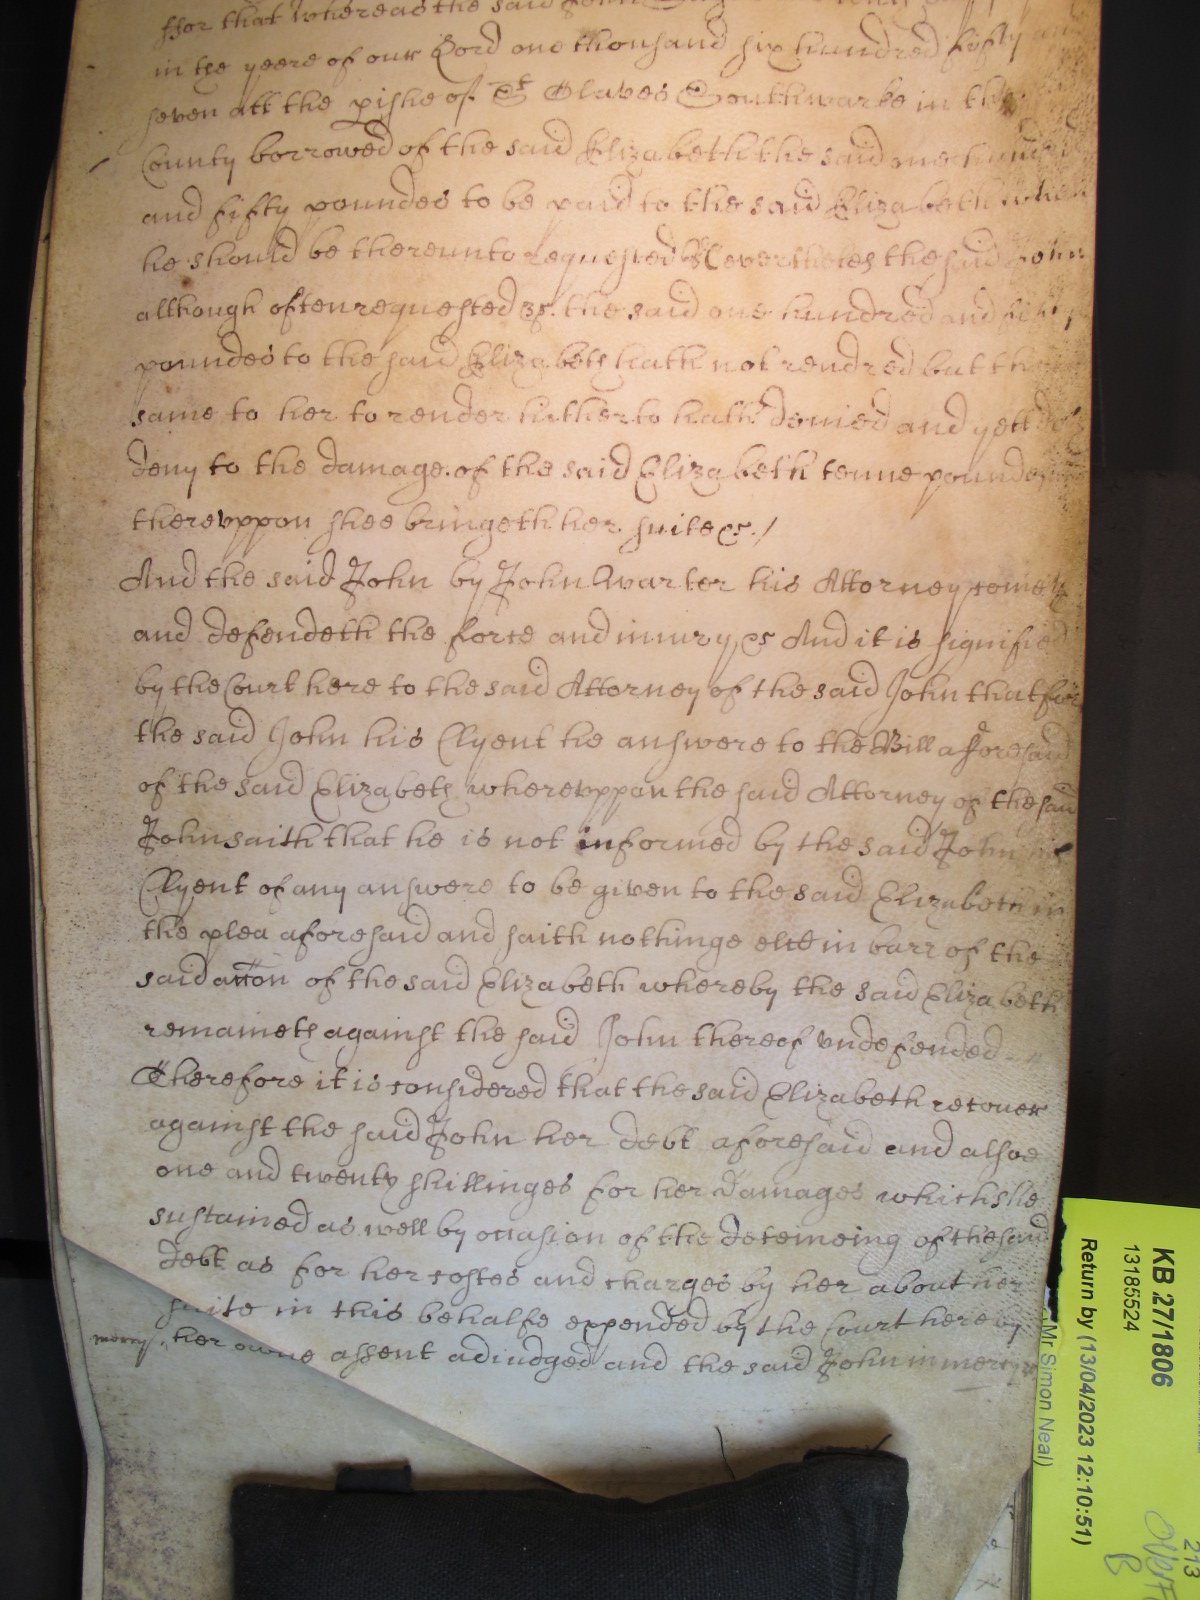 ffor that whereas the said John
in the yeere of our Lord one thousand six hundred fifty and
seven att the pishe of St Olaves Southwarke in the
County borrowed of the said Elizabeth the said one hundred
and fifty poundes to be paid to the said Elizabeth when
he should be thereunto requested Neverthelesse the said John
although often requested &c. the said one hundred and fifty
poundes to the said Elizabeth hath not rendred but the
same to her to render hitherto hath denied and yett doth
deny to the damage of the said Elizabeth tenne poundes
thereuppon shee bringeth her suite &c./
And the said John by John Warter his Attorney cometh
and defendeth the force and iniury &c And it is signified
by the Court here to the said Attorney of the said John that for
the said John his Clyent he answere to the Bill afforesaid
of the said Elizabeth whereuppon the said Attorney of the said
John saith that he is not informed by the said John his
Clyent of any answere to be given to the said Elizabeth in
the plea aforesaid and saith nothinge else in barr of the
said accon of the said Elizabeth whereby the said Elizabeth
remaineth against the said John thereof undefended
Therefore it is considered that the said Elizabeth recover
against the said John her debt aforesaid and alsoe
one and twenty shillinges for her damages which she
sustained as well by occasion of the deteineing of the said
debt as for her costes and charges by her about her
suite in this behalfe expended by the Court here by
mercy. her owne assent adiudged and the said John in mercy
KB 27/1806
13185524
Return by (13/04/2023 12:10:51)
(Mr Simon Neal)
213